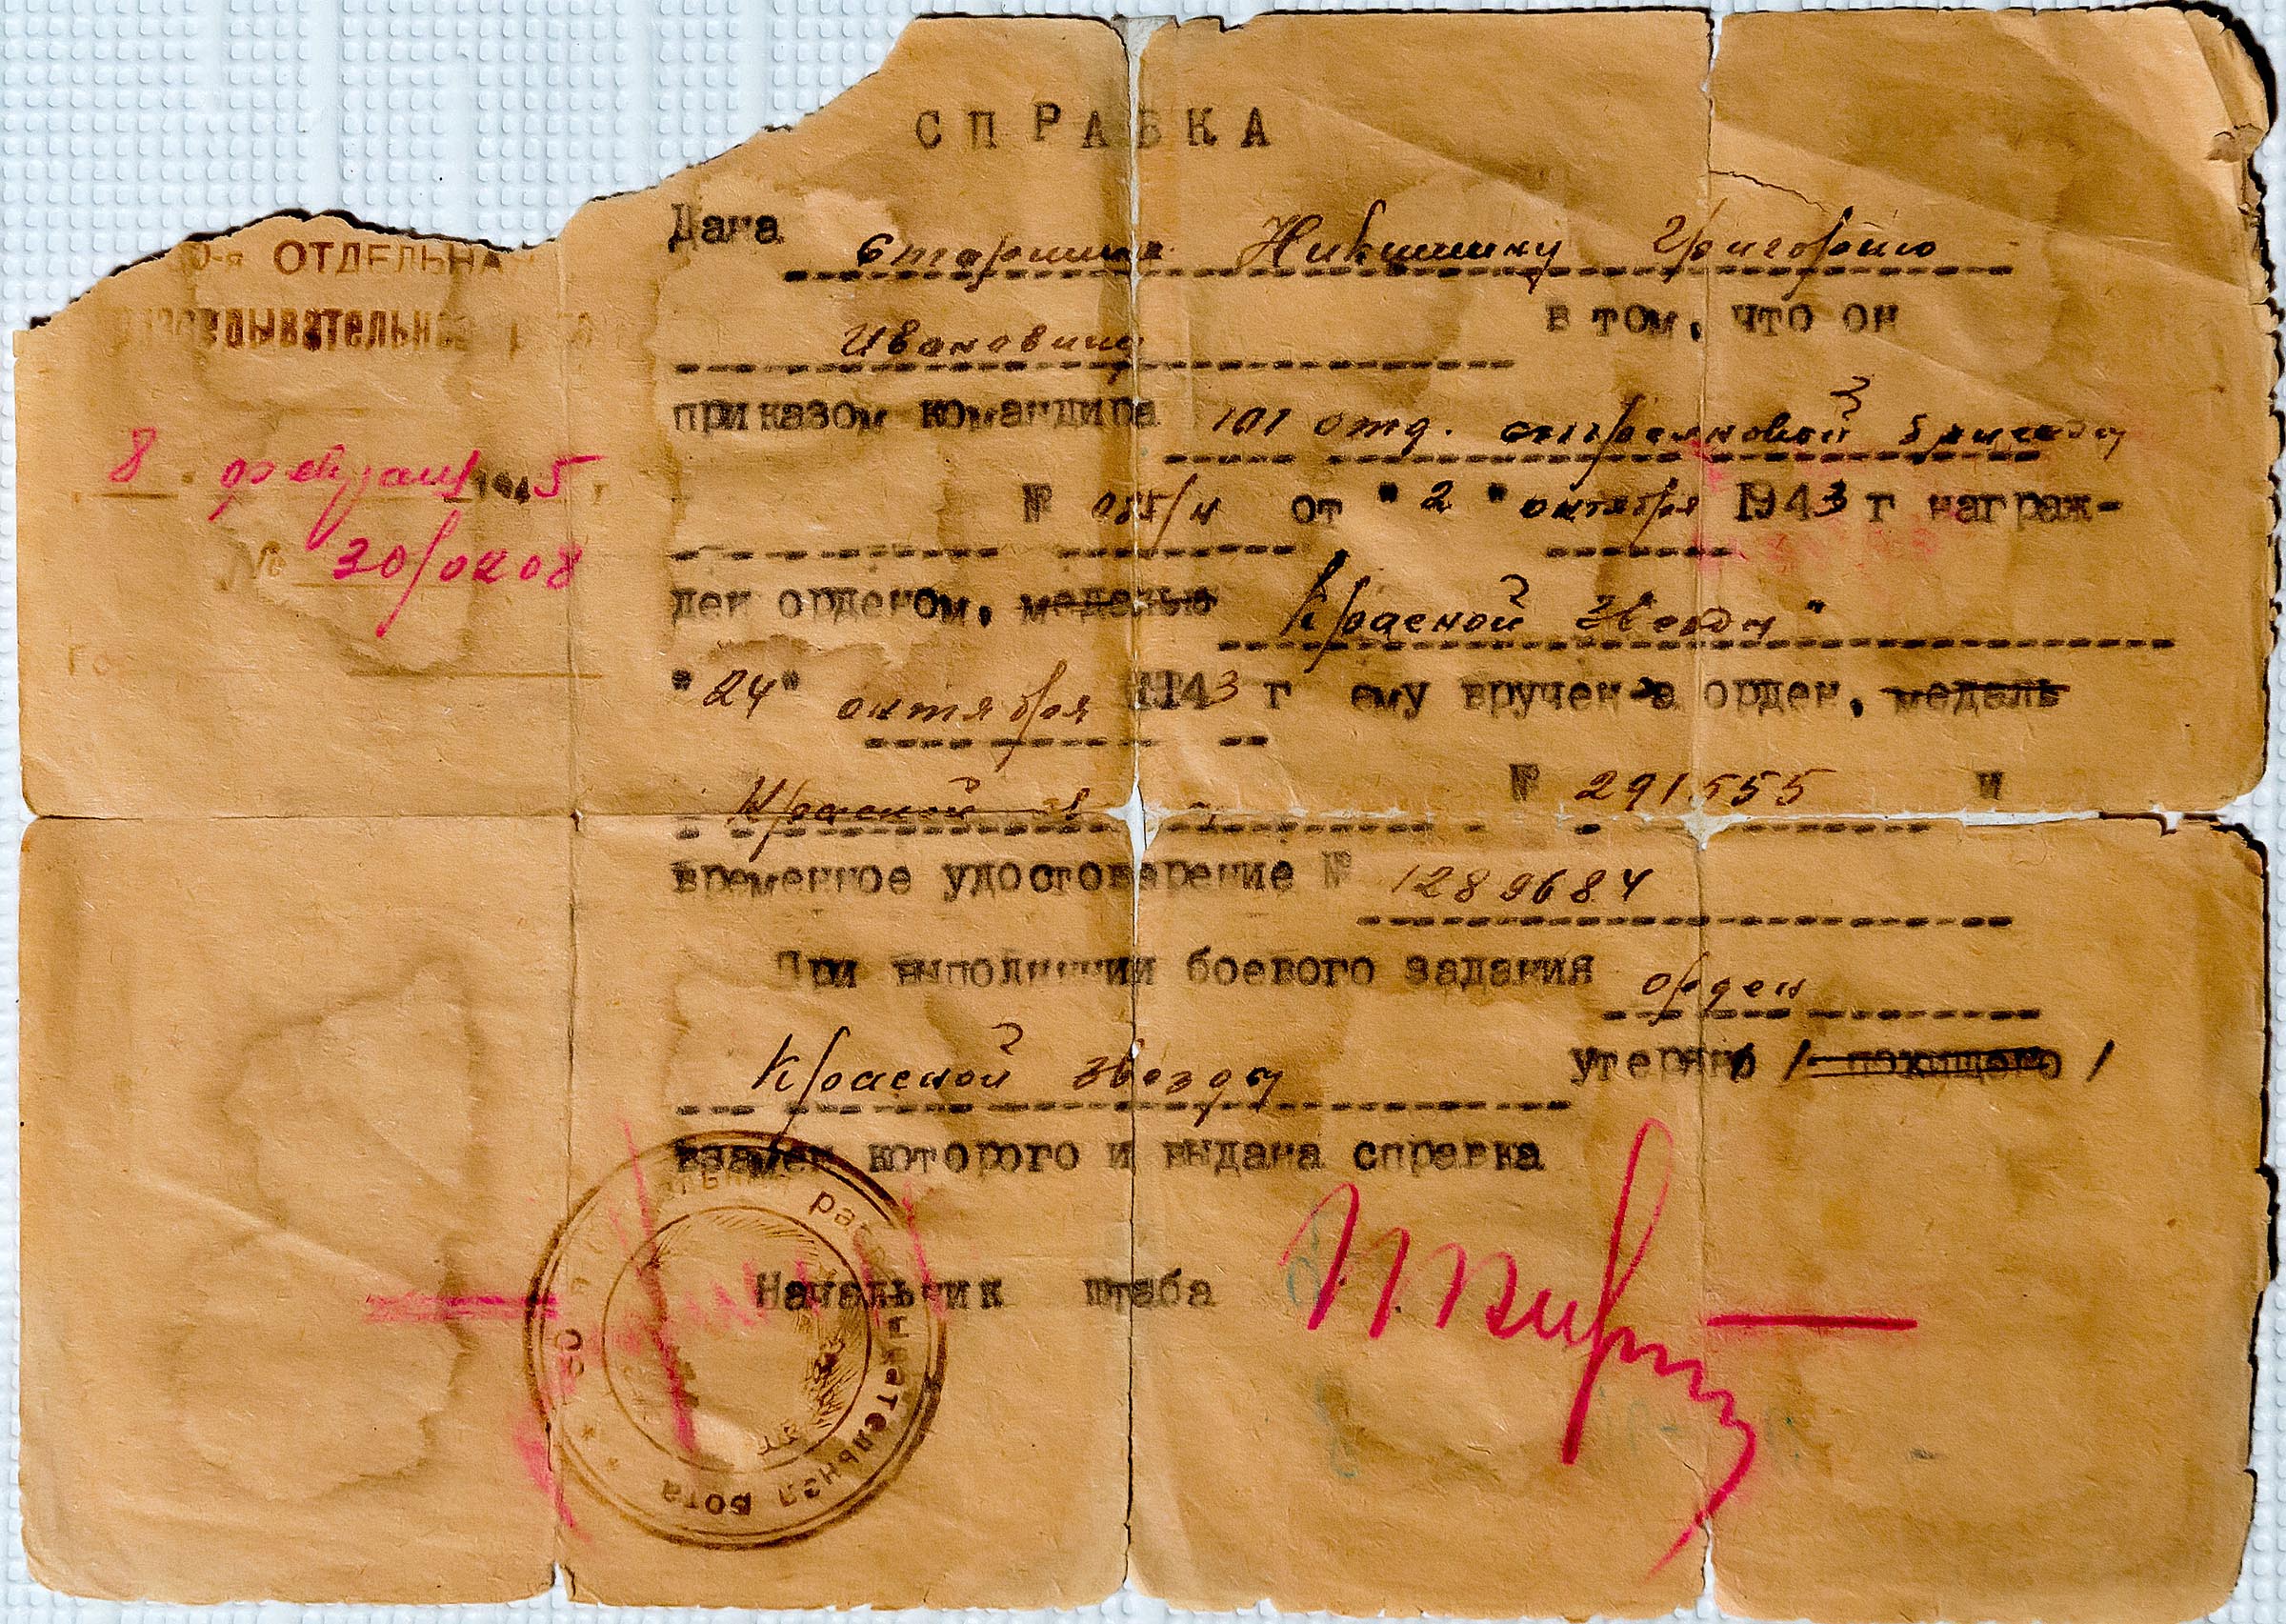 СПРАВКА
ОТДЕЛЬНА
Дана Старшине Никишину Григорию
Ивановичу в том, что он
приказом командира 101 отд. стрелковой бригады
8 февраля 1945
№ 085/н от "2" октября 1943 г награж-
№ 30/0208
ден орденом, медалью Красной Звезды"
"24" октября 1943 г ему вручен-а орден, медаль
Красной Зв № 291555 и
временное удостоверение № 1289684
При выполнении боевого задания орден
Красной Звезды утеряно / похищено /
взамен которого и выдана справка
Начальник штаба
разведывательная рота